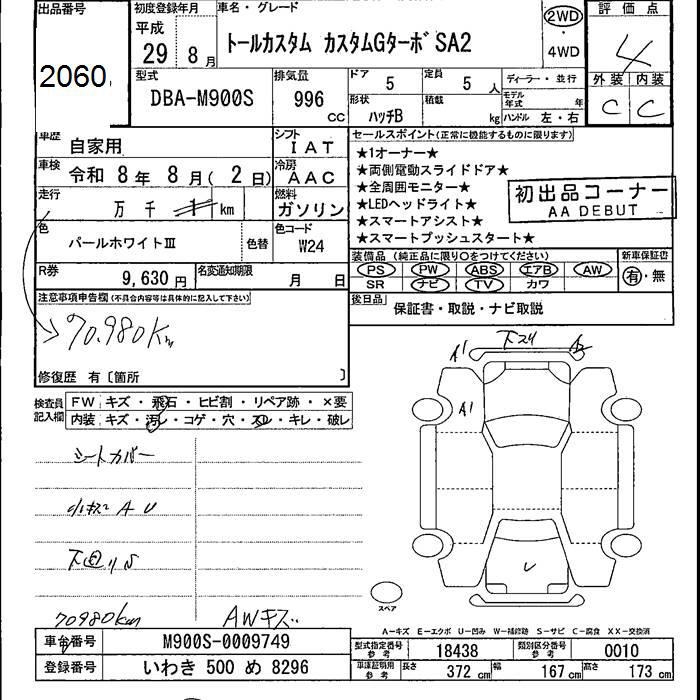 出品番号 初度登録年月 車名・グレード 評価点
平成 29年 8月 トールカスタム カスタムGターボ SA2 2WD・4WD 4
2060
型式 排気量 ドア 定員 ディーラー・並行 外装 内装
DBA-M900S 996 CC 5 5人 モデル年式 年 C C
形状 積載 ハンドル 左・右
ハッチB kg
車歴 自家用 シフト IAT セールスポイント(正常に機能するものに限ります)
★1オーナー★
車検 令和 8年 8月( 2日) 冷房 AAC ★両側電動スライドドア★
★全周囲モニター★
走行 万 千 km 燃料 ガソリン ★LEDヘッドライト★
初出品コーナー
AA DEBUT
★スマートアシスト★
色 パールホワイトⅢ 色替 色コード W24 ★スマートプッシュスタート★
装備品(純正品に限り○をつけてください) 新車保証書
R券 9,630円 名変通知期限 月 日 PS PW ABS エアB AW 有・無
SR ナビ TV カワ
注意事項申告欄(不具合内容等は具体的に記入して下さい) 後日品 保証書・取説・ナビ取説
70.980Km
修復歴 有〔箇所 〕
検査員記入欄 FW キズ・飛石・ヒビ割・リペア跡・×要
内装 キズ・汚レ・コゲ・穴・スレ・キレ・破レ
A1 下スリ A2
A1
シートカバー
小キズ A U
下回りS
U
スペア
70980km AWキズ
A-キズ E-エクボ U-凹み W-補修跡 S-サビ C-腐食 XX-交換済
車台番号 M900S-0009749 型式指定番号 参考 18438 類別区分番号 参考 0010
登録番号 いわき 500 め 8296 車庫証明用 参考 長さ 372 cm 幅 167 cm 高さ 173 cm